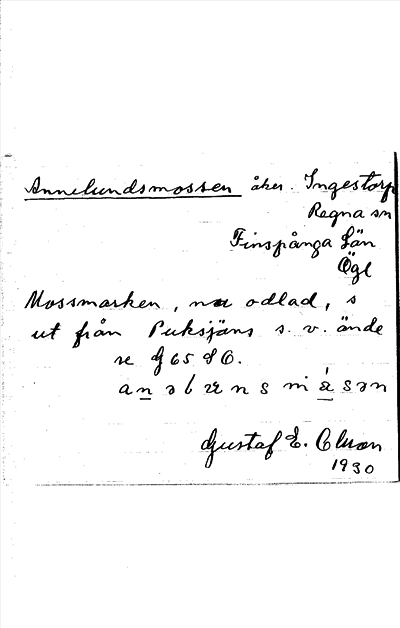 Annelundsmossen åker. Ingestorp
Regna sn
Finspånga län
Ögl
Mossmarken, nu odlad, s
ut från Puksjäns s. v. ände
se
Gustaf E. Olsson
1930